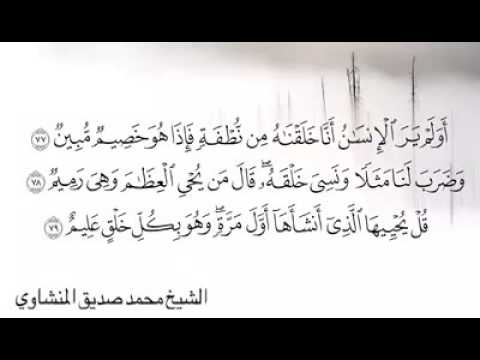 أَوَلَمْ يَرَ ٱلْإِنسَـٰنُ أَنَّا خَلَقْنَـٰهُ مِن نُّطْفَةٍ فَإِذَا هُوَ خَصِيمٌ مُّبِينٌ ٧٧
وَضَرَبَ لَنَا مَثَلًا وَنَسِىَ خَلْقَهُۥ ۖ قَالَ مَن يُحْىِ ٱلْعِظَـٰمَ وَهِىَ رَمِيمٌ ٧٨
قُلْ يُحْيِيهَا ٱلَّذِىٓ أَنشَأَهَآ أَوَّلَ مَرَّةٍ ۖ وَهُوَ بِكُلِّ خَلْقٍ عَلِيمٌ ٧٩
الشيخ محمد صديق المنشاوي